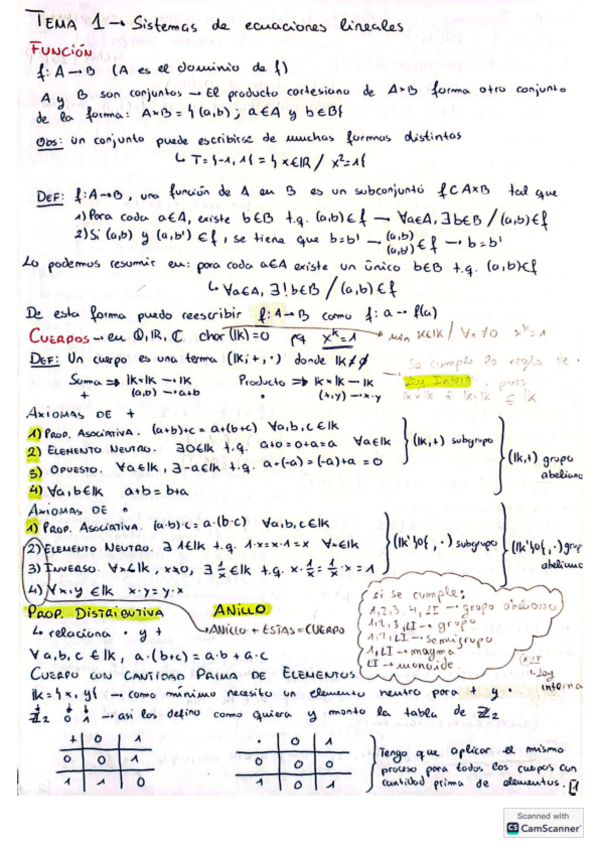 TEMA 1 → Sistemas de ecuaciones lineales
FUNCIÓN
f: A → B (A es el dominio de f)
A y B son conjuntos → El producto cartesiano de A×B forma otro conjunto
de la forma: A×B = {(a,b) ; a∈A y b∈B}
Obs: un conjunto puede escribirse de muchas formas distintas
↳ T = {-1, 1} = {x∈ℝ / x²=1}
DEF: f: A→B, una función de A en B es un subconjunto f⊂A×B tal que
1) Para cada a∈A, existe b∈B t.q. (a,b)∈f → ∀a∈A, ∃b∈B / (a,b)∈f
2) Si (a,b) y (a,b') ∈f, se tiene que b=b' → (a,b) (a,b') ∈f → b=b'
Lo podemos resumir en: para cada a∈A existe un único b∈B t.q. (a,b)∈f
↳ ∀a∈A, ∃!b∈B / (a,b)∈f
De esta forma puedo reescribir f: A→B como f: a → f(a)
CUERPOS → en ℚ, ℝ, ℂ char(𝕜)=0 pq xᵏ=1 → min k∈𝕜 / ∀x≠0 xᵏ=1
DEF: Un cuerpo es una terna (𝕜, +, ·) donde 𝕜≠∅ Se cumple la regla de
Suma ⇒ 𝕜×𝕜 → 𝕜 Producto ⇒ 𝕜×𝕜 → 𝕜 Ley Interna, pues
+ (a,b) → a+b · (x,y) → x·y
AXIOMAS DE +
1) PROP. ASOCIATIVA. (a+b)+c = a+(b+c) ∀a,b,c∈𝕜
2) ELEMENTO NEUTRO. ∃0∈𝕜 t.q. a+0=0+a=a ∀a∈𝕜 (𝕜,+) subgrupo
3) OPUESTO. ∀a∈𝕜, ∃-a∈𝕜 t.q. a+(-a)=(-a)+a=0 (𝕜,+) grupo abeliano
4) ∀a,b∈𝕜 a+b=b+a
AXIOMAS DE ·
1) PROP. ASOCIATIVA. (a·b)·c = a·(b·c) ∀a,b,c∈𝕜
2) ELEMENTO NEUTRO. ∃1∈𝕜 t.q. 1·x=x·1=x ∀x∈𝕜 (𝕜\{0}, ·) subgrupo (𝕜\{0}, ·) grup abeliano
3) INVERSO. ∀x∈𝕜, x≠0, ∃ 1/x ∈𝕜 t.q. x·1/x = 1/x·x = 1
4) ∀x,y∈𝕜 x·y=y·x
PROP. DISTRIBUTIVA ANILLO
↳ relaciona · y + → ANILLO + ESTAS = CUERPO
∀a,b,c∈𝕜, a·(b+c) = a·b + a·c
si se cumple:
1,2,3,4,LI → grupo abeliano
1,2,3,LI → grupo
1,2,LI → semigrupo
1,LI → magma
LI → monoide.
ley interna
CUERPO CON CANTIDAD PRIMA DE ELEMENTOS
𝕜={x, y} → como mínimo necesito un elemento neutro para + y ·
ℤ₂ 0 1 → así los defino como quiera y monto la tabla de ℤ₂
+ 0 1 · 0 1
0 0 1 0 0 0
1 1 0 1 0 1
Tengo que aplicar el mismo
proceso para todos los cuerpos con
cantidad prima de elementos.
Scanned with
CS CamScanner